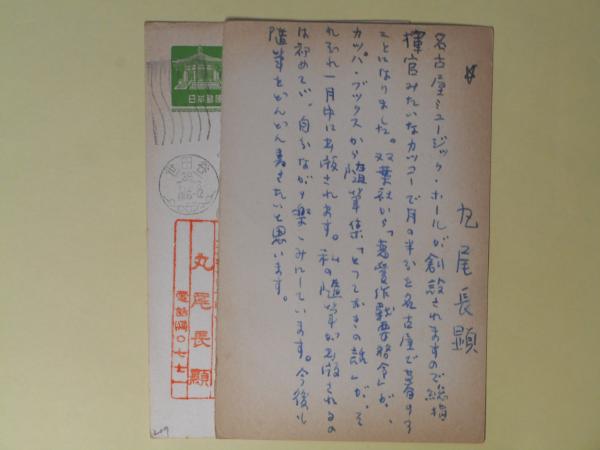 丸尾長顕
名古屋ミュージック・ホールが創設されますので総指
揮官みたいなカッコーで月の半分を名古屋で暮すする
ことになりました。双葉社から「恋愛作戦要務令」が、
カッパ・ブックスから随筆集「とっておきの話」が、そ
れぞれ一月中に出版されます。私の随筆が出版されるの
は初めてで、自分ながら楽しみにしています。今後も
随筆をどんどん書きたいと思います。
日本郵便
世田谷
丸尾長顕